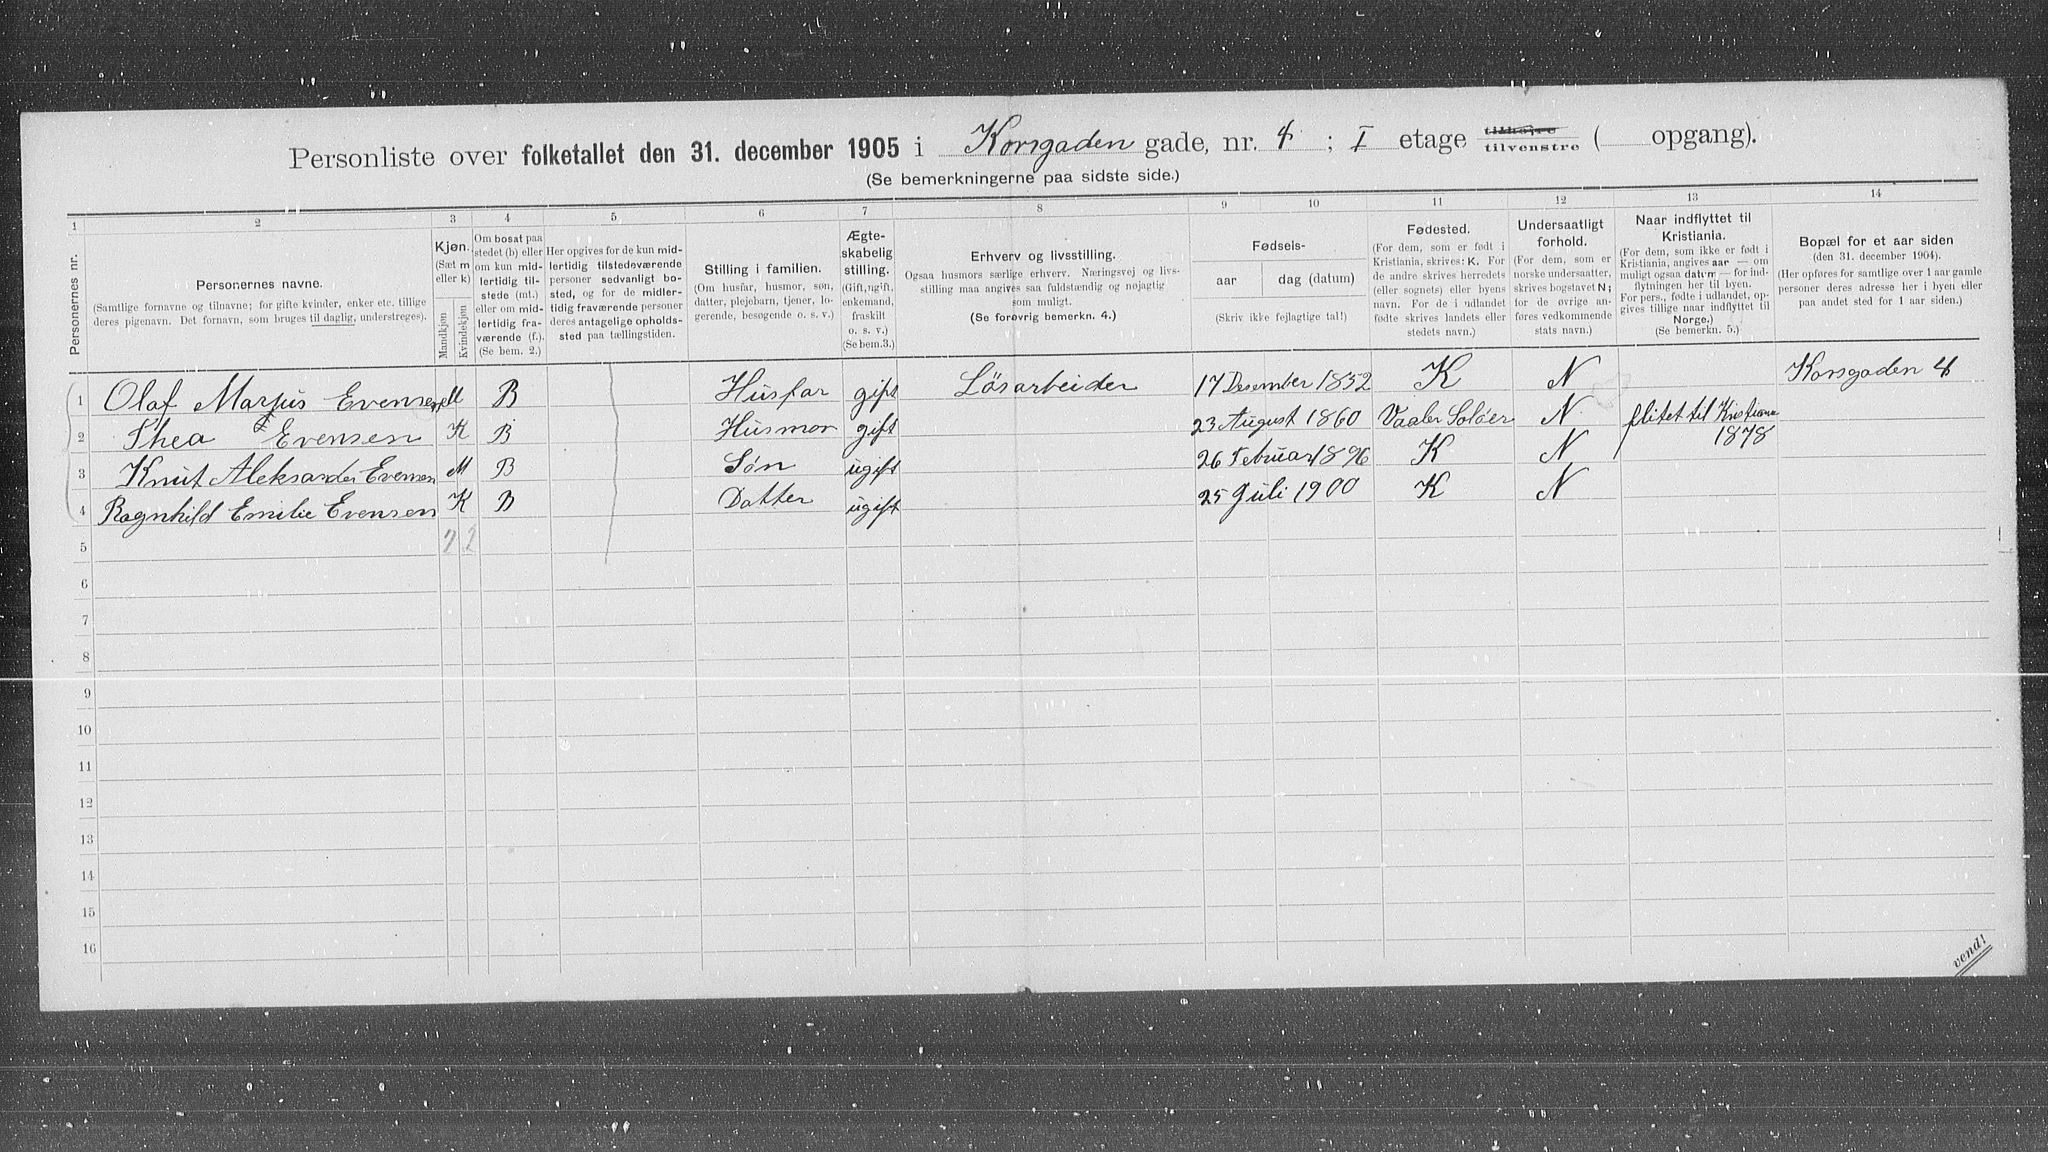 Personliste over folketallet den 31. december 1905 i Korsgaden gade, nr. 4 ; I etage tilhøire tilvenstre ( opgang).
(Se bemerkningerne paa sidste side.)
1 2 3 4 5 6 7 8 9 10 11 12 13 14
Personernes nr.
Personernes navne.
(Samtlige fornavne og tilnavne; for gifte kvinder, enker etc. tillige
deres pigenavn. Det fornavn, som bruges til daglig, understreges).
Kjøn.
(Sæt m
eller k)
Mandkjøn
Kvindekjøn
Om bosat paa
stedet (b) eller
om kun mid-
lertidig til-
stede (mt.)
eller om mid-
lertidig fra-
værende (f.).
(Se bem. 2.)
Her opgives for de kun mid-
lertidig tilstedeværende
personer sedvanlig bo-
sted, og for de midler-
tidig fraværende personer
deres antagelige opholds-
sted paa tællingstiden.
Stilling i familien.
(Om husfar, husmor, søn,
datter, plejebarn, tjener, lo-
gerende, besøgende o. s. v.)
Ægte-
skabelig
stilling.
(Gift, ugift,
enkemand,
fraskilt
o. s. v.)
(Se bem.3.)
Erhverv og livsstilling.
Ogsaa husmors særlige erhverv. Næringsvej og livs-
stilling maa angives saa fuldstændig og nøjagtig
som muligt.
(Se forøvrig bemerkn. 4.)
Fødsels-
aar dag (datum)
(Skriv ikke fejlagtige tal!)
Fødested.
(For dem, som er født i
Kristiania, skrives: K. For
de andre skrives herredets
(eller sognets) eller byens
navn. For de i udlandet
fødte skrives landets eller
stedets navn.)
Undersaatligt
forhold.
(For dem, som er
norske undersaatter,
skrives bogstavet N;
for de øvrige an-
føres vedkommende
stats navn.)
Naar indflyttet til
Kristiania.
(For dem, som ikke er født i
Kristiania, angives aar — om
muligt ogsaa datum — for ind-
flytningen her til byen.
For pers., fødte i udlandet, op-
gives tillige naar indflyttet til
Norge.)
(Se bemerkn. 5.)
Bopæl for et aar siden
(den 31. december 1904).
(Her opføres for samtlige over 1 aar gamle
personer deres adresse her i byen eller
paa andet sted for 1 aar siden.)
1 Olaf Marjus Evensen M B Husfar gift Løsarbeider 17 Desember 1852 K N Korsgaden 4
2 Thea Evensen K B Husmor gift 23 August 1860 Vaaler Soløer N flitet til Kristiania 1878
3 Knut Aleksander Evensen M B Søn ugift 26 Februar 1896 K N
4 Ragnhild Emilie Evensen K B Datter ugift 25 Juli 1900 K N
5 2 2
6
7
8
9
10
11
12
13
14
15
16
vend!